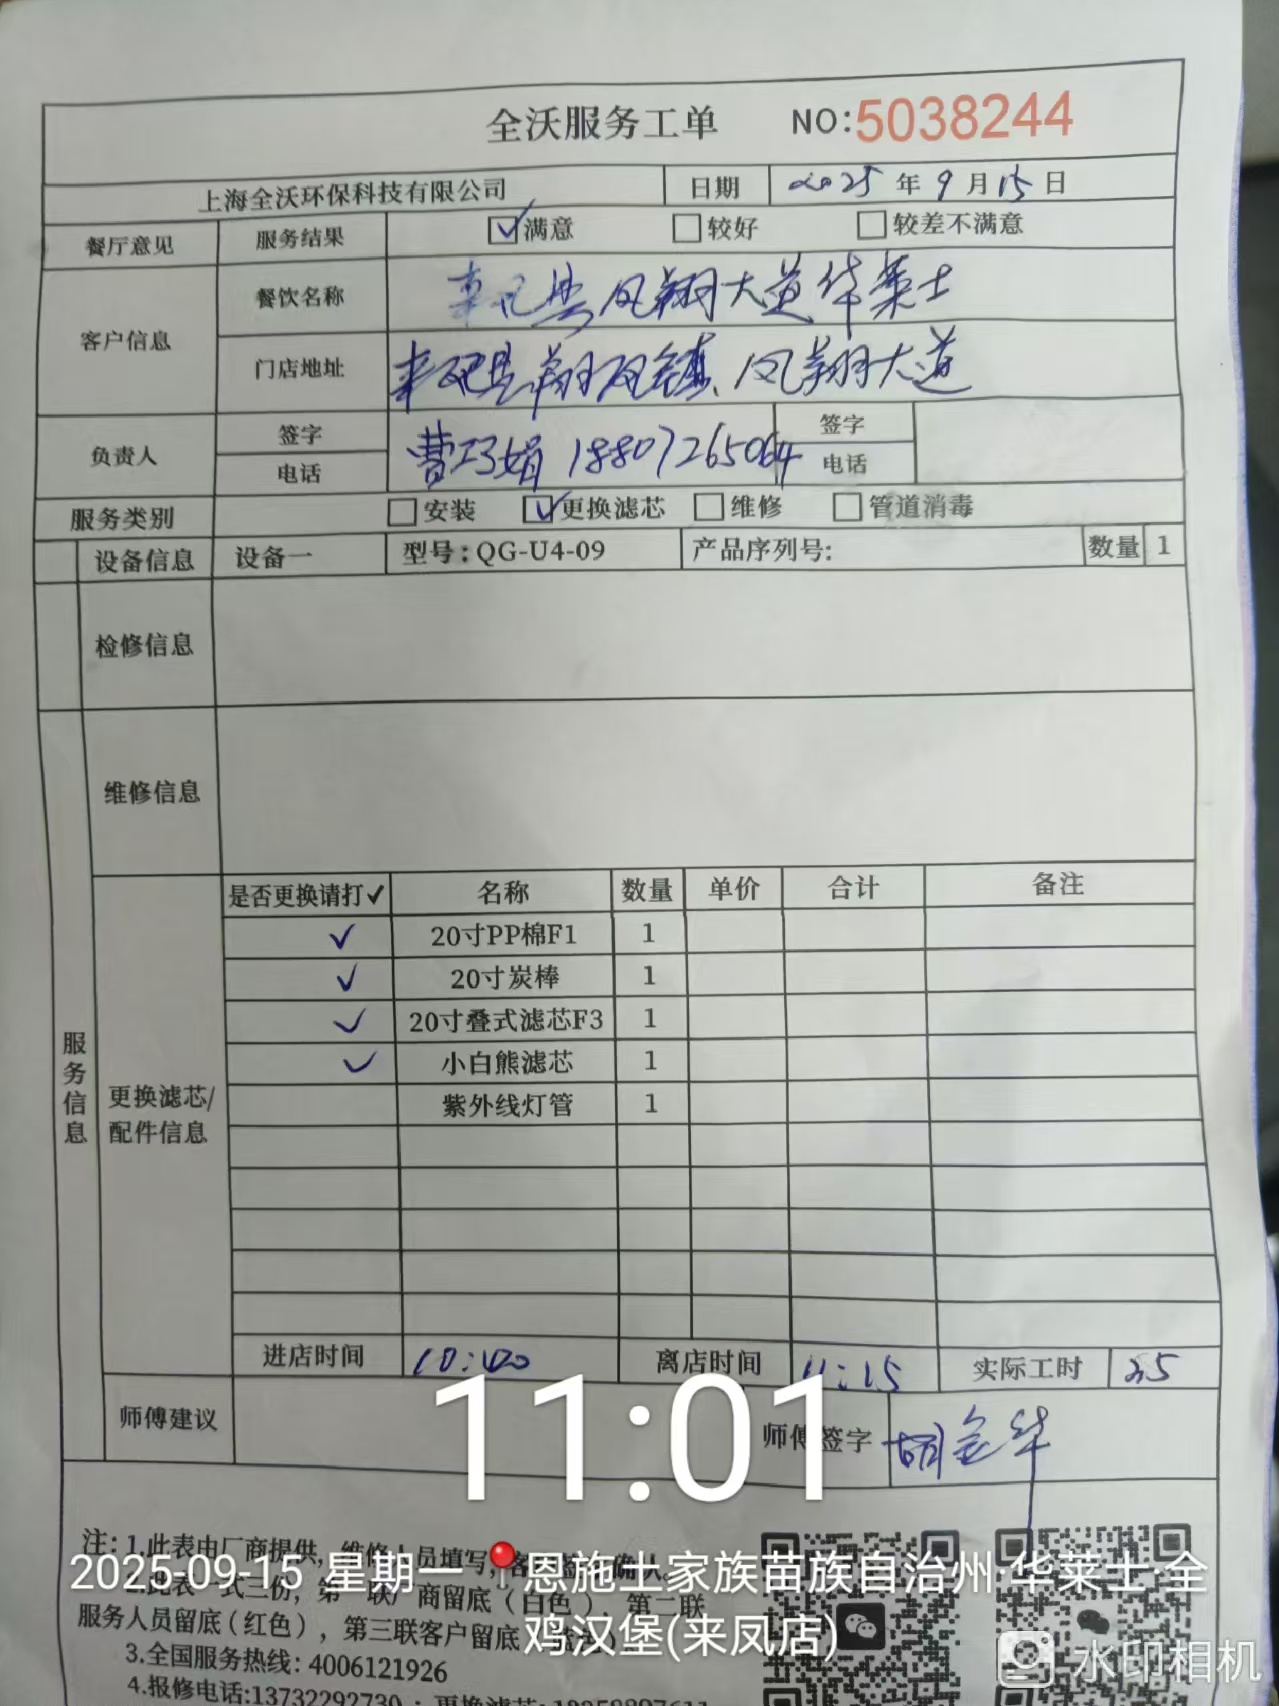 全沃服务工单 NO:5038244
上海全沃环保科技有限公司 日期 2025年9月15日
餐厅意见 服务结果 ☑满意 □较好 □较差不满意
客户信息 餐饮名称 来凤县凤翔大道华莱士
门店地址 来凤县翔凤镇、凤翔大道
负责人 签字 电话 曹巧娟 18807265064 签字 电话
服务类别 □安装 ☑更换滤芯 □维修 □管道消毒
设备信息 设备一 型号:QG-U4-09 产品序列号: 数量 1
检修信息
维修信息
服务信息
更换滤芯/配件信息
是否更换请打✓ 名称 数量 单价 合计 备注
✓ 20寸PP棉F1 1
✓ 20寸炭棒 1
✓ 20寸叠式滤芯F3 1
✓ 小白熊滤芯 1
紫外线灯管 1
进店时间 10:40 离店时间 11:15 实际工时 35
师傅建议 师傅签字 胡金华
11:01
注: 1.此表由厂商提供, 维修人员填写,
2025-09-15 星期一 恩施土家族苗族自治州·华莱士·全鸡汉堡(来凤店)
2.此表一式三份, 第一联厂商留底(白色), 第二联
服务人员留底(红色), 第三联客户留底
3.全国服务热线: 4006121926
4.报修电话:13732292730
水印相机